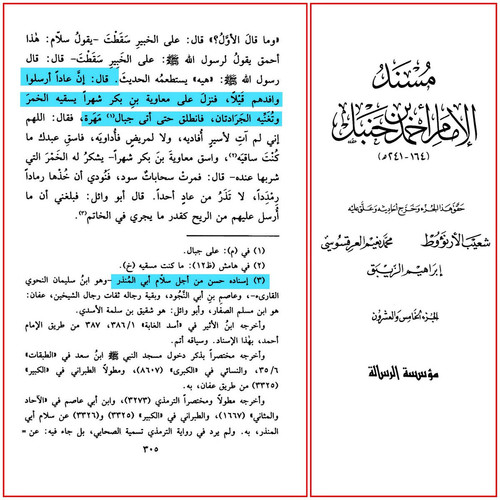 «وما قال الأوَّلُ؟» قال: على الخبير سَقَطْتَ -يقولُ سلّام: هٰذا
أحمق يقولُ لرسول الله ﷺ: على الخَبِيرِ سَقَطْتَ- قال: قال
رسول الله ﷺ: «هيه» يستطعمُه الحديثَ. قال: إنَّ عاداً أرسلوا
وافِدهم قَيْلاً، فنزلَ على معاوية بنِ بكر شهراً يسقيه الخمرَ
وتُغَنِّيه الجَرَادتان، فانطلق حتى أتى جبال(١) مَهَرة، فقال: اللهم
إني لم آتِ لأسيرٍ أُفاديه، ولا لمريضٍ فأُداويَه، فاسقِ عبدك ما
كُنْتَ ساقِيَه(٢)، واسق معاويةَ بنَ بكر شهراً- يشكرُ له الخَمْرَ التي
شربها عنده- قال: فمرتْ سحاباتٌ سود، فنُودي أن خُذْها رماداً
رِمْدَداً، لا تَذَرُ من عادٍ أحداً. قال أبو وائل: فبلغني أن ما
أُرسل عليهم من الريح كقدر ما يجري في الخاتم(٣).
(١) في (م): على جبال.
(٢) في هامش (ظ١٢): ما كنت مسقيه (خ).
(٣) إسناده حسن من أجل سلّام أبي المُنذر -وهو ابنُ سليمان النحوي
القارىء-، وعاصمِ بنِ أبي النَّجُود، وبقية رجاله ثقات رجال الشيخين، عفان:
هو ابن مسلم الصفار، وأبو وائل: هو شقيق بن سلمة الأسدي.
وأخرجه ابنُ الأثير في «أسد الغابة» ٣٨٦/١، ٣٨٧ من طريق الإمام
أحمد، بهٰذا الإسناد. وسياقه أتم.
وأخرجه مختصراً بذكر دخول مسجد النبي ﷺ ابنُ سعد في «الطبقات»
٣٥/٦، والنسائي في «الكبرى» (٨٦٠٧)، ومطولاً الطبراني في «الكبير»
(٣٣٢٥) من طريق عفان، به.
وأخرجه مطولاً ومختصراً الترمذي (٣٢٧٣)، وابن أبي عاصم في «الآحاد
والمثاني» (١٦٦٧)، والطبراني في «الكبير» (٣٣٢٥) و(٣٣٢٦) عن سلام أبي
المنذر، به. ولم يرد في رواية الترمذي تسمية الصحابي، بل جاء فيه: عن =
٣٠٥
مُسْنَدُ
الإمام أحمد بن حنبل
(١٦٤-٢٤١ھ)
حَقَّقَ هٰذا الجُزء وَخَرَّجَ أحَاديثَه وَعَلَّقَ عَلَيْه
شعَيب الأرنؤوط محمّد نعيم العرقسُوسي
إبراهيم الزيبق
الجزء الخامس والعشرون
مؤسسة الرسالة